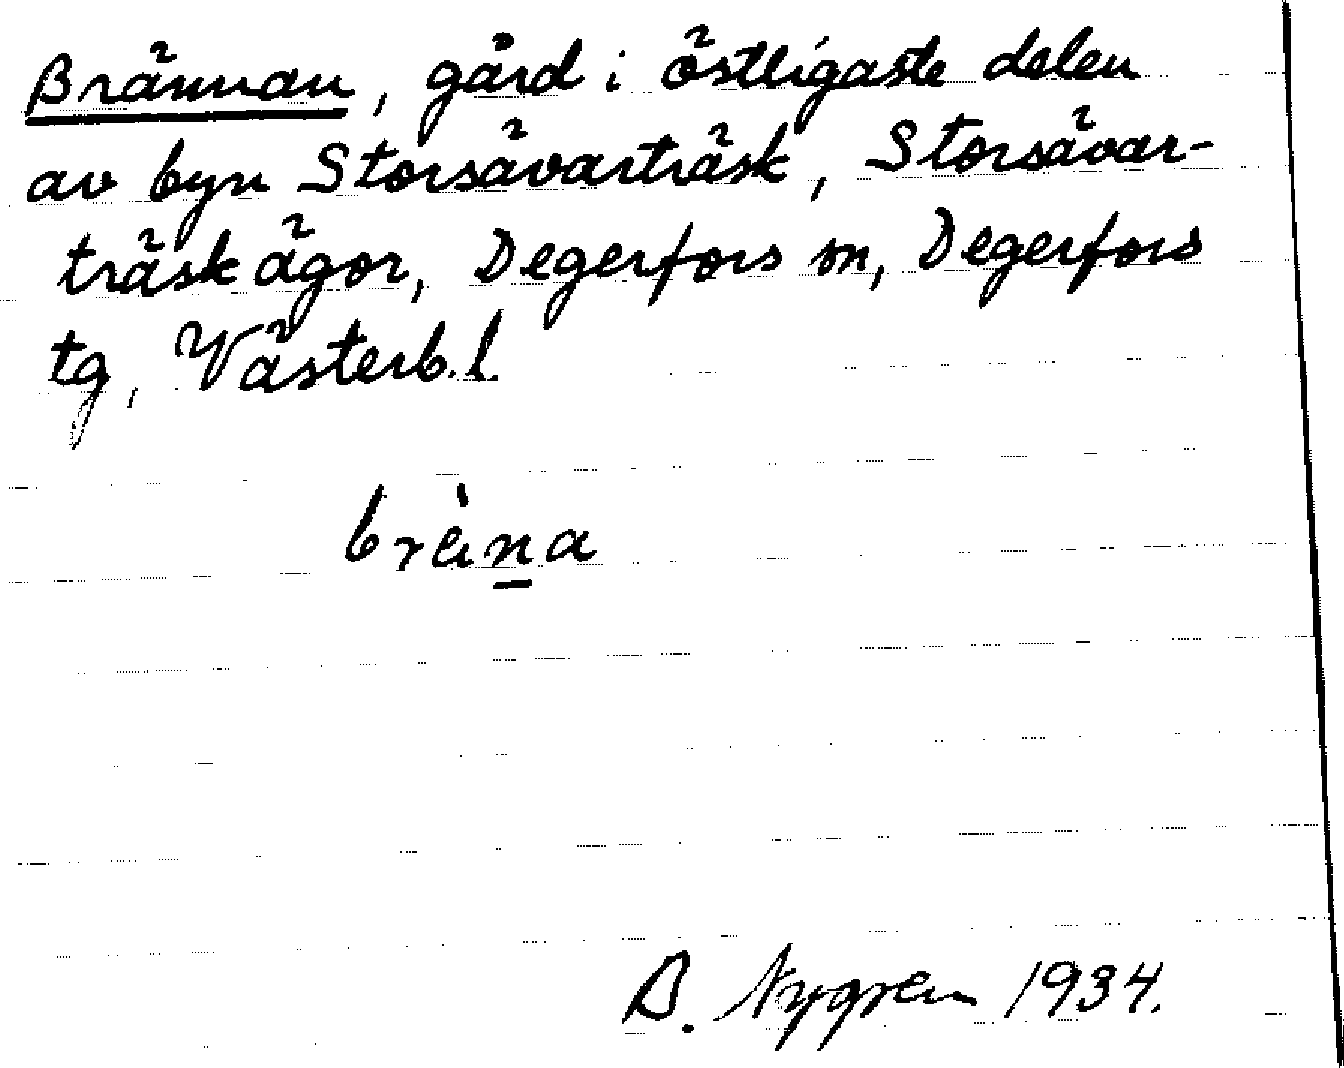 Brännan, gård i östligaste delen
av byn Storsävarträsk, Storsävar-
träsk ägor, Degerfors sn, Degerfors
tg, Västerb. l.
brèn̲a
B. Nygren 1934.